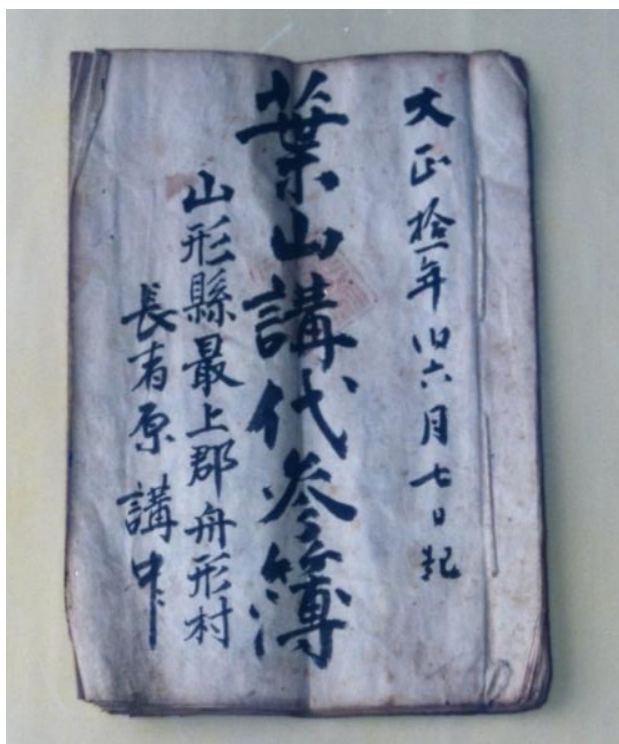 大正拾一年旧六月七日起
葉山講代参簿
山形縣最上郡舟形村
長者原講中